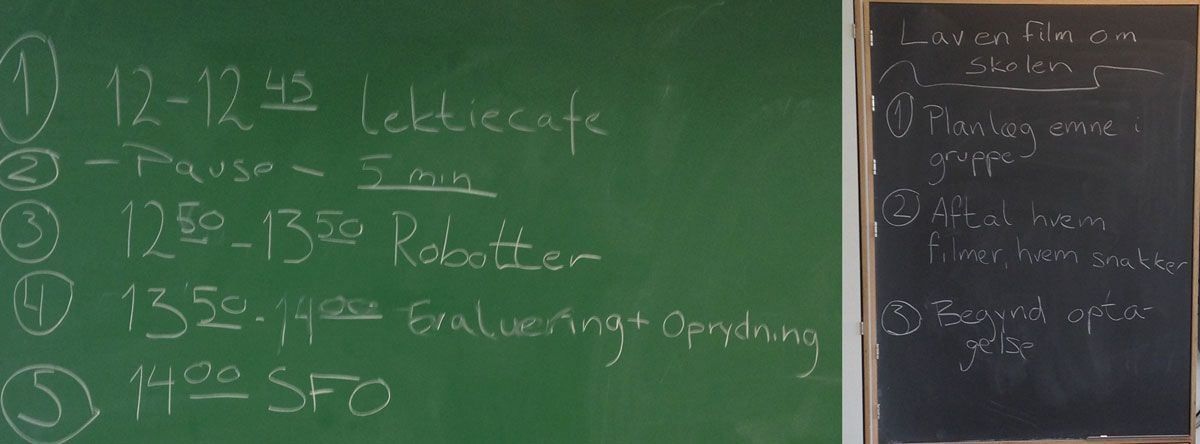 1 12-12 45 lektiecafe
2 - Pause - 5 min
3 12 50 - 13 50 Robotter
4 13 50 - 14 00 Evaluering + Oprydning
5 14 00 SFO
Lav en film om
skolen
1 Planlæg emne i
gruppe
2 Aftal hvem
filmer, hvem snakker
3 Begynd opta-
gelse